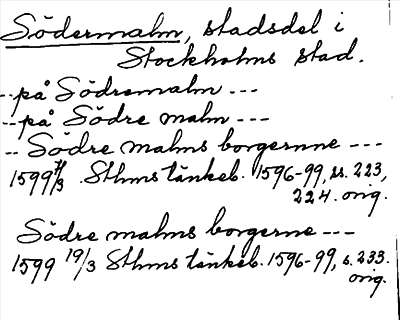 Södermalm, stadsdel i
Stockholms stad.
--på Södremalm ---
--på Södre malm ---
-- Södre malms borgernne ---
1599 /3 Sthms tänkeb. 1596-99, ss. 223,
224. orig.
Södre malms borgerne ---
1599 19/3 Sthms tänkeb. 1596-99, s. 233.
orig.